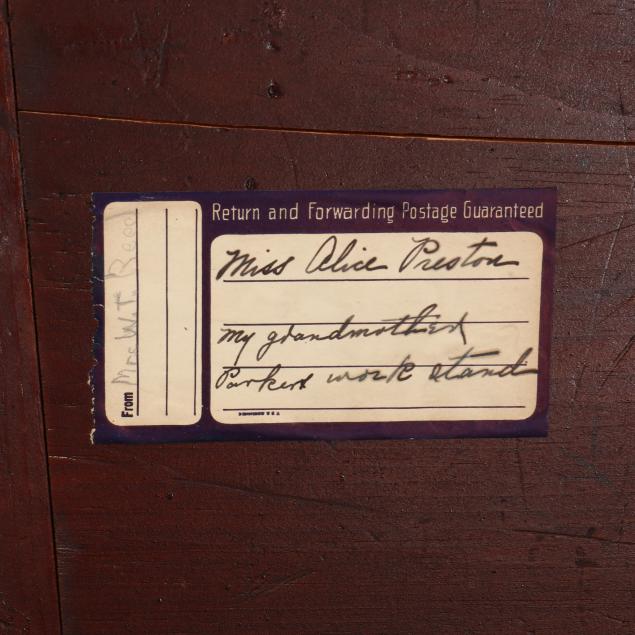 Return and Forwarding Postage Guaranteed
Miss Alice Preston
My grandmother
Parkers work stand
From Mrs W.T. Reed